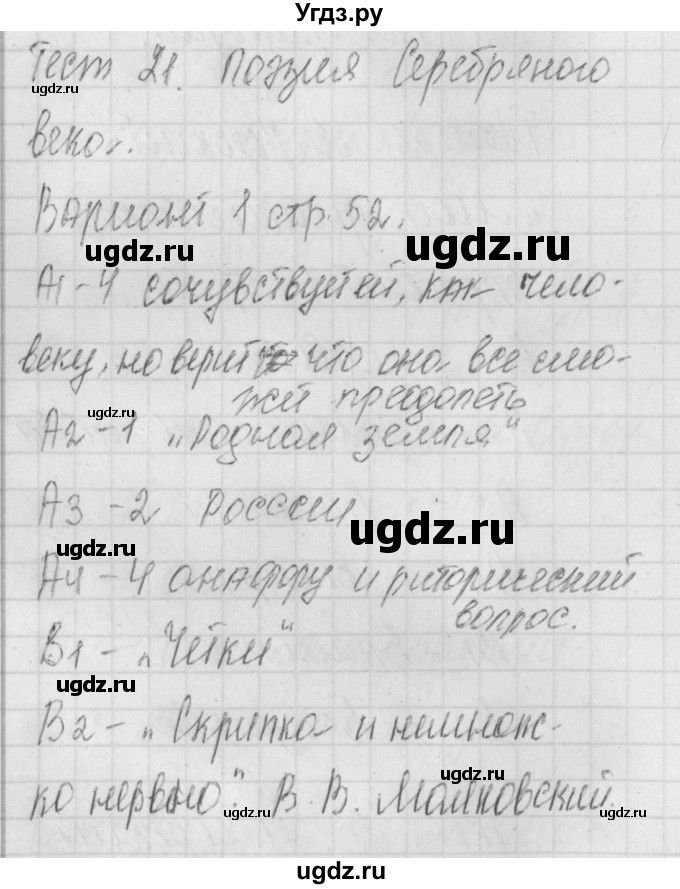 Угдз.ру
Тест 21. Поэзия Серебряного
века.
Вариант 1 стр. 52.
А1-4 сочувствует ей, как чело-
веку, но верит что она все смо-
жет преодолеть
А2-1 „Родная земля"
А3-2 России
А4-4 анафору и риторический
вопрос.
В1-„Чётки"
В2-„Скрипка и немнож-
ко нервно". В. В. Маяковский.
ugdz.ru
ugdz.ru
ugdz.ru
ugdz.ru
ugdz.ru
ugdz.ru
ugdz.ru
ugdz.ru
ugdz.ru
ugdz.ru
ugdz.ru
ugdz.ru